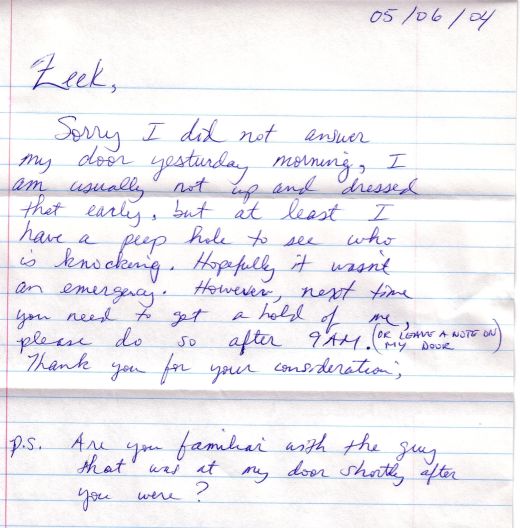 05/06/04
Zeek,
Sorry I did not answer
my door yesturday morning, I
am usually not up and dressed
that early, but at least I
have a peep hole to see who
is knocking. Hopefully it wasn't
an emergency. However, next time
you need to get a hold of me,
please do so after 9AM. (OR LEAVE A NOTE ON
MY DOOR)
Thank you for your consideration,
p.s. Are you familiar with the guy
that was at my door shortly after
you were?